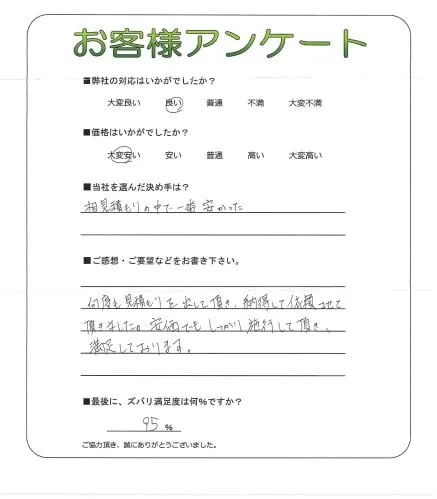 お客様アンケート
■弊社の対応はいかがでしたか？
大変良い 良い 普通 不満 大変不満
■価格はいかがでしたか？
大変安い 安い 普通 高い 大変高い
■当社を選んだ決め手は？
相見積もりの中で一番安かった
■ご感想・ご要望などをお書き下さい。
何度も見積もりを出して頂き、納得して依頼させて
頂きました。安価でもしっかり施行して頂き、
満足しております。
■最後に、ズバリ満足度は何％ですか？
95 ％
ご協力頂き、誠にありがとうございました。